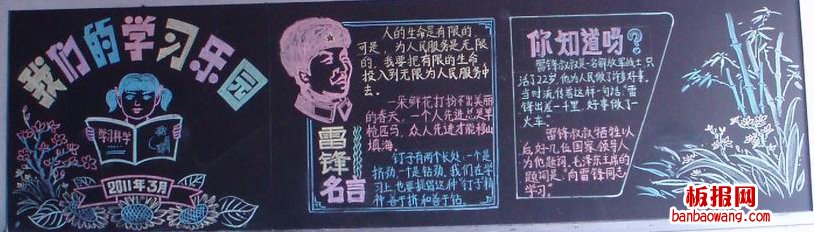 我们的学习乐园
学习科学
2011年3月
人的生命是有限的
可是，为人民服务是无限
的，我要把有限的生命
投入到无限为人民服务中
去。
一朵鲜花打扮不出美丽
的春天，一个人先进总是单
枪匹马，众人先进才能移山
填海。
钉子有两个长处：一个是
挤劲，一个是钻劲，我们在学
习上也要提倡这种"钉子精
神善于挤和善于钻
雷锋
名言
你知道吗？
雷锋叔叔是一名解放军战士，只
活了22岁，他为人民做了许多好事，
当时流传着这样一句话"雷
锋出差一千里，好事做了一
火车。"
雷锋叔叔牺牲以
后，好几位国家领导人
为他题词，毛泽东主席的
题词是："向雷锋同志
学习"
板报网
banbaowang.com